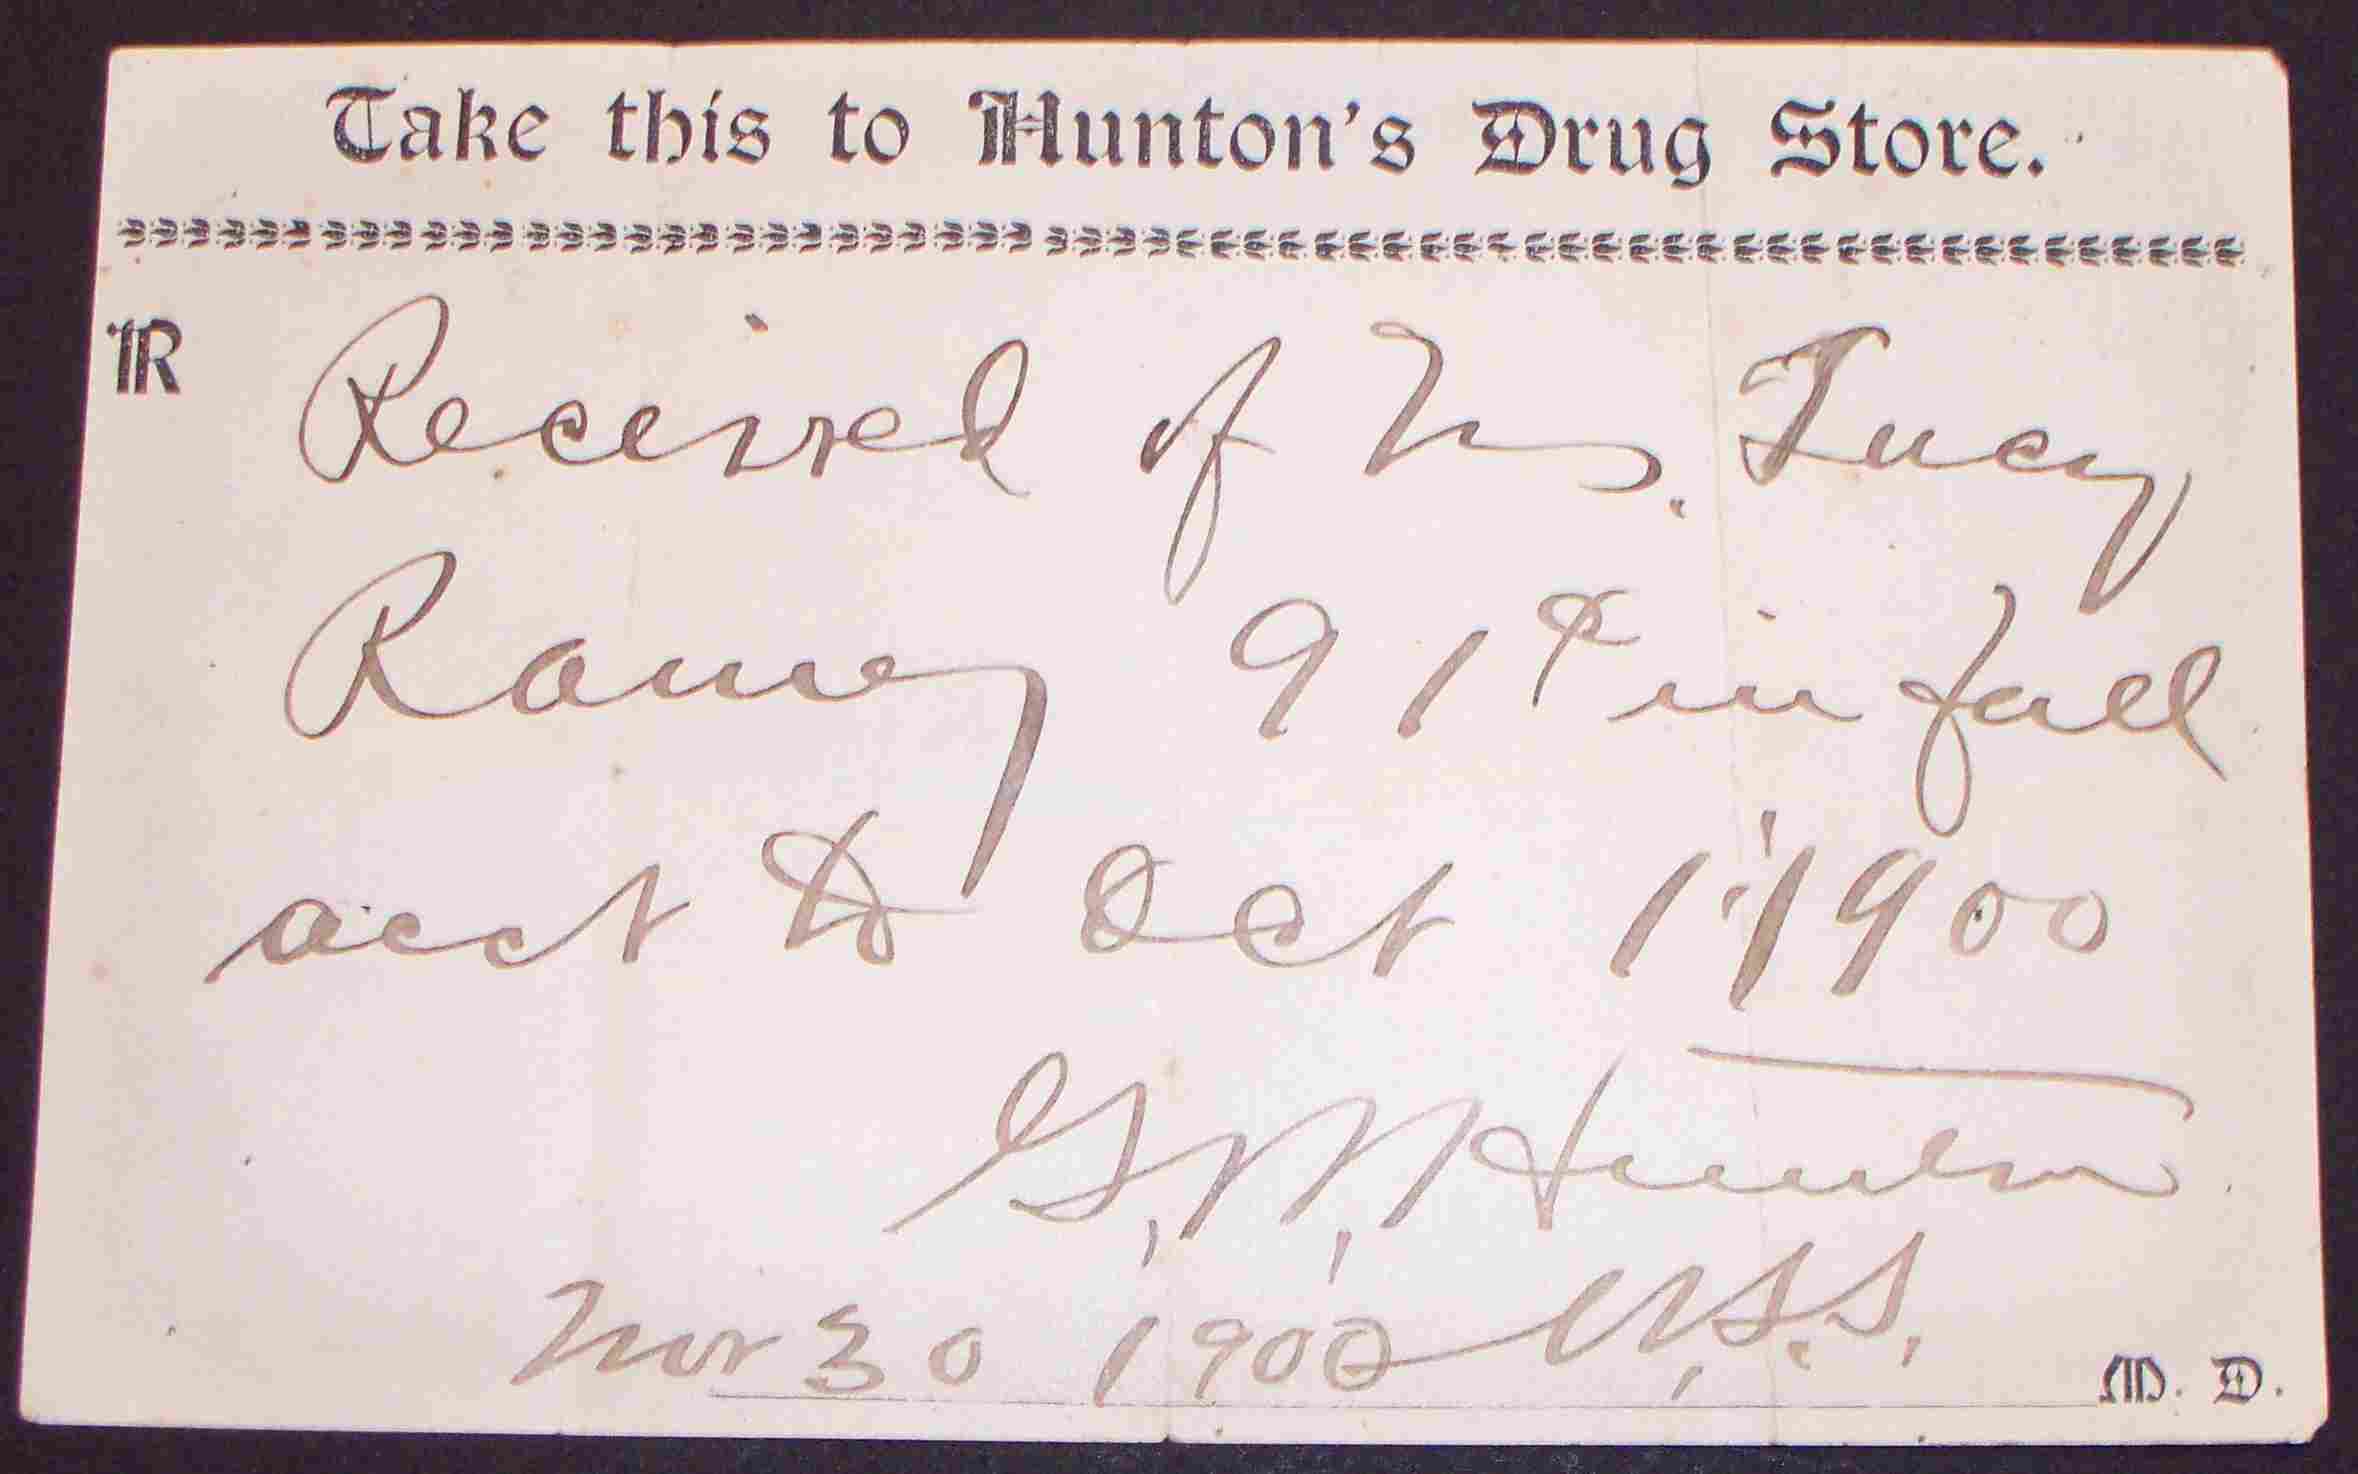 Take this to Hunton's Drug Store.
R Received of Mrs. Lucy
Ramey 91¢ in full
acct to Oct 1, 1900
Hunton
Nov 30 1900
M. D.